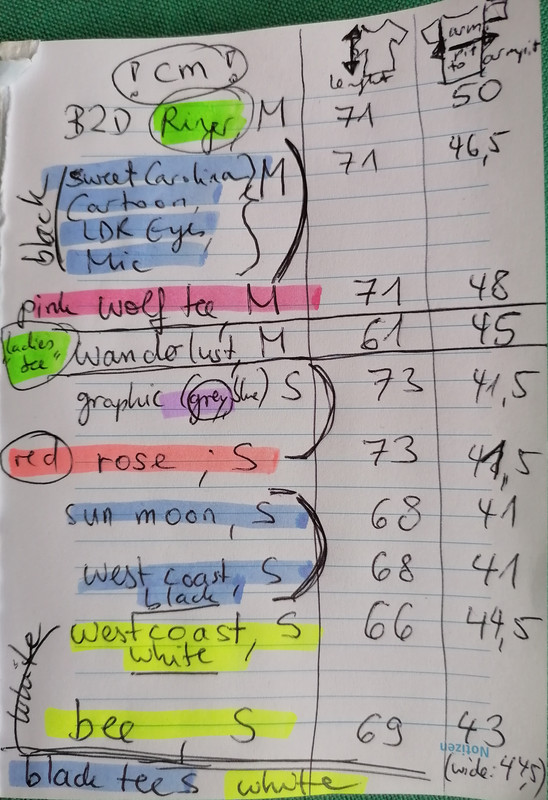 ! cm !
lenght
arm
pit
to
armpit
B2D Ringer, M 71 50
black
(sweet Carolina) M 71 46,5
Cartoon,
LDR Eyes,
Mic
pink wolf tee M 71 48
"ladies tee" Wanderlust, M 61 45
graphic (grey/blue) S 73 41,5
red rose ; S 73 41,5
sun moon, S 68 41
west coast, S 68 41
black
westcoast, S 66 44,5
white
white
bee S 69 43
Notizen
(wide: 44,5)
black tees white